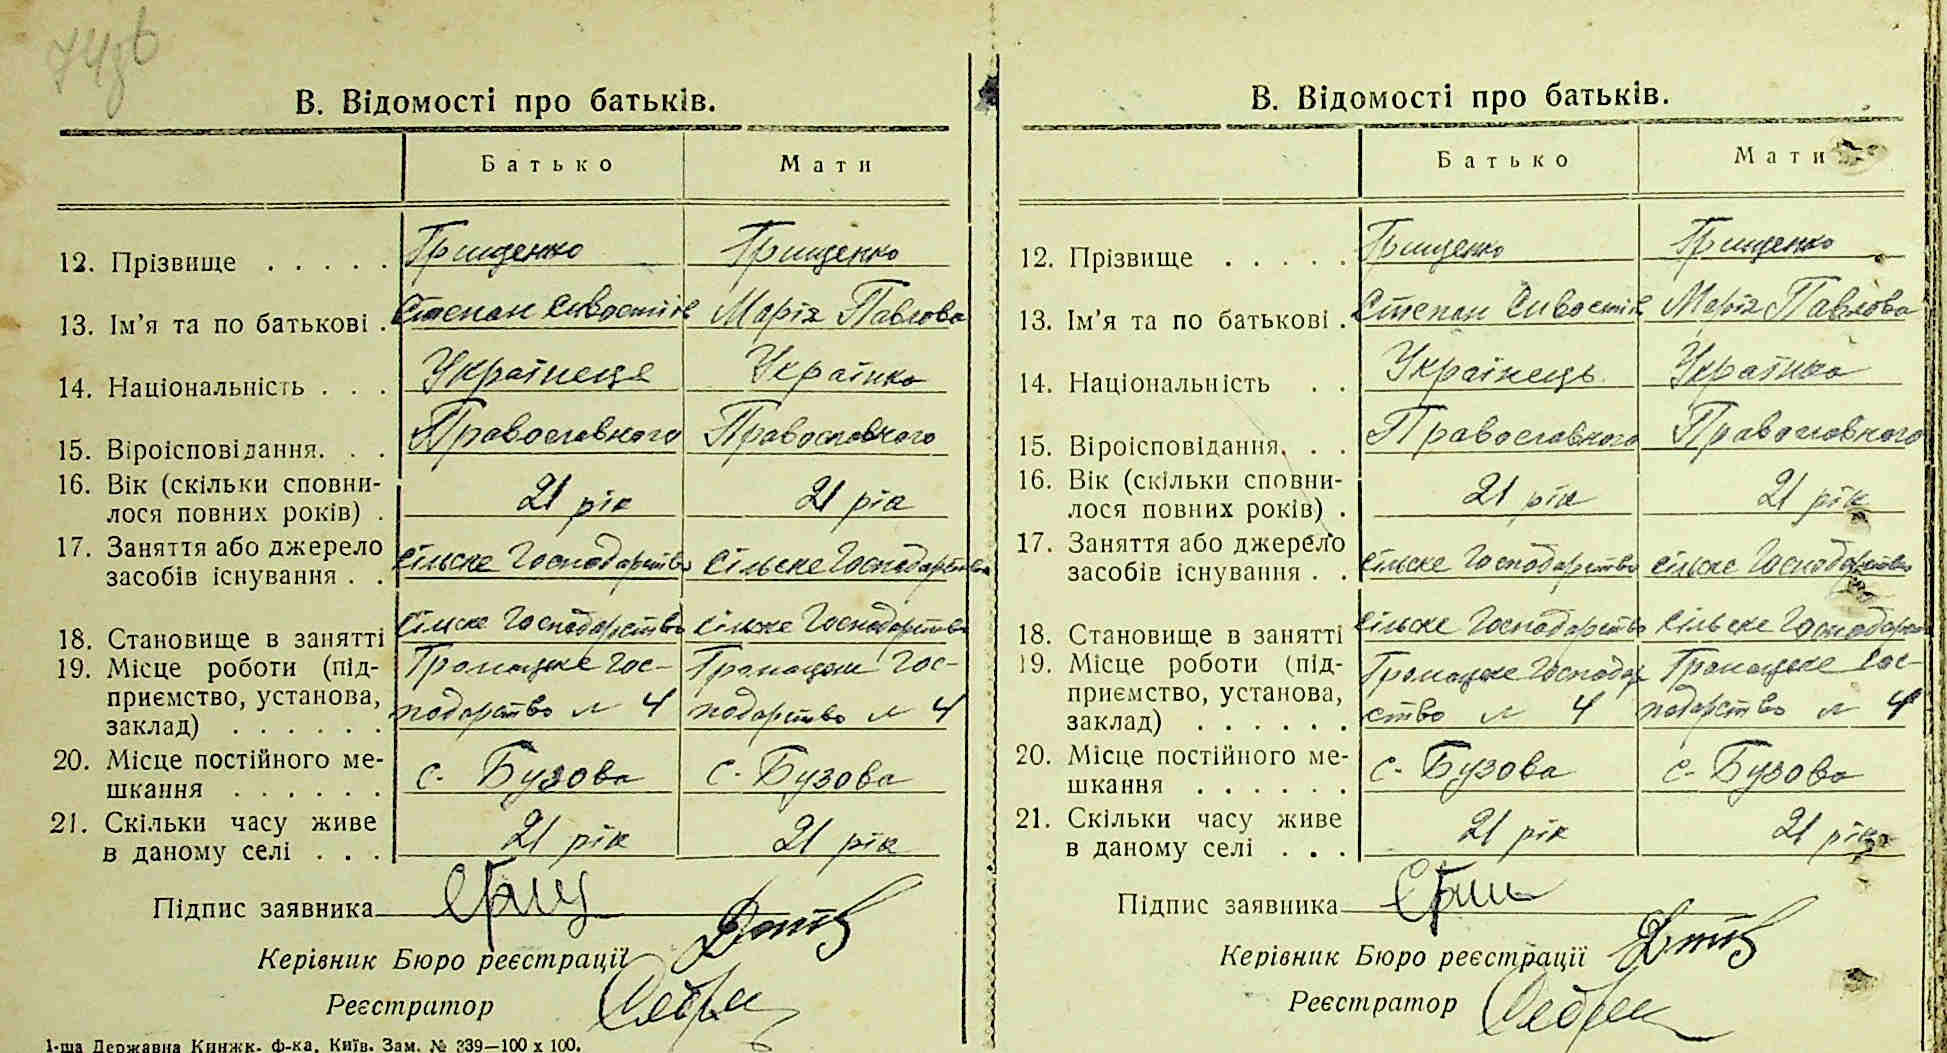 В. Відомості про батьків.
Батько Мати
12. Прізвище . . . . . Грищенко Грищенко
13. Ім'я та по батькові . Степан Сивостіів Марія Павлова
14. Національність . . . Українець Українка
15. Віроісповідання. . . Православного Православного
16. Вік (скільки сповни-
лося повних років) . 21 рік 21 рік
17. Заняття або джерело
засобів існування . . сільске Господарство сільске Господарство
18. Становище в занятті сілске Господарство сільске Господарство
19. Місце роботи (під- Громацке Гос- Громацке Гос-
приємство, установа, подарство № 4 подарство № 4
заклад) . . . . . .
20. Місце постійного ме-
шкання . . . . . . с. Бузова с. Бузова
21. Скільки часу живе
в даному селі . . . 21 рік 21 рік
Підпис заявника
Керівник Бюро реєстрації
Реєстратор
1-ша Державна Книжк. ф-ка, Київ. Зам. № 239—100 x 100.
В. Відомості про батьків.
Батько Мати
12. Прізвище . . . . . Грищенко Грищенко
13. Ім'я та по батькові . Степан Марія Павлова
14. Національність . . Українець Українка
15. Віроісповідання. . . Православного Православного
16. Вік (скільки сповни-
лося повних років) . 21 рік 21 рік
17. Заняття або джерело
засобів існування . . сільске Господарство сільске Господарство
18. Становище в занятті сільске Господарство сільске Господарство
19. Місце роботи (під- Громацке Господар Громацке Гос-
приємство, установа, ство № 4 подарство № 4
заклад) . . . . . .
20. Місце постійного ме-
шкання . . . . . . с. Бузова с. Бузова
21. Скільки часу живе
в даному селі . . . 21 рік 21 рік
Підпис заявника
Керівник Бюро реєстрації
Реєстратор